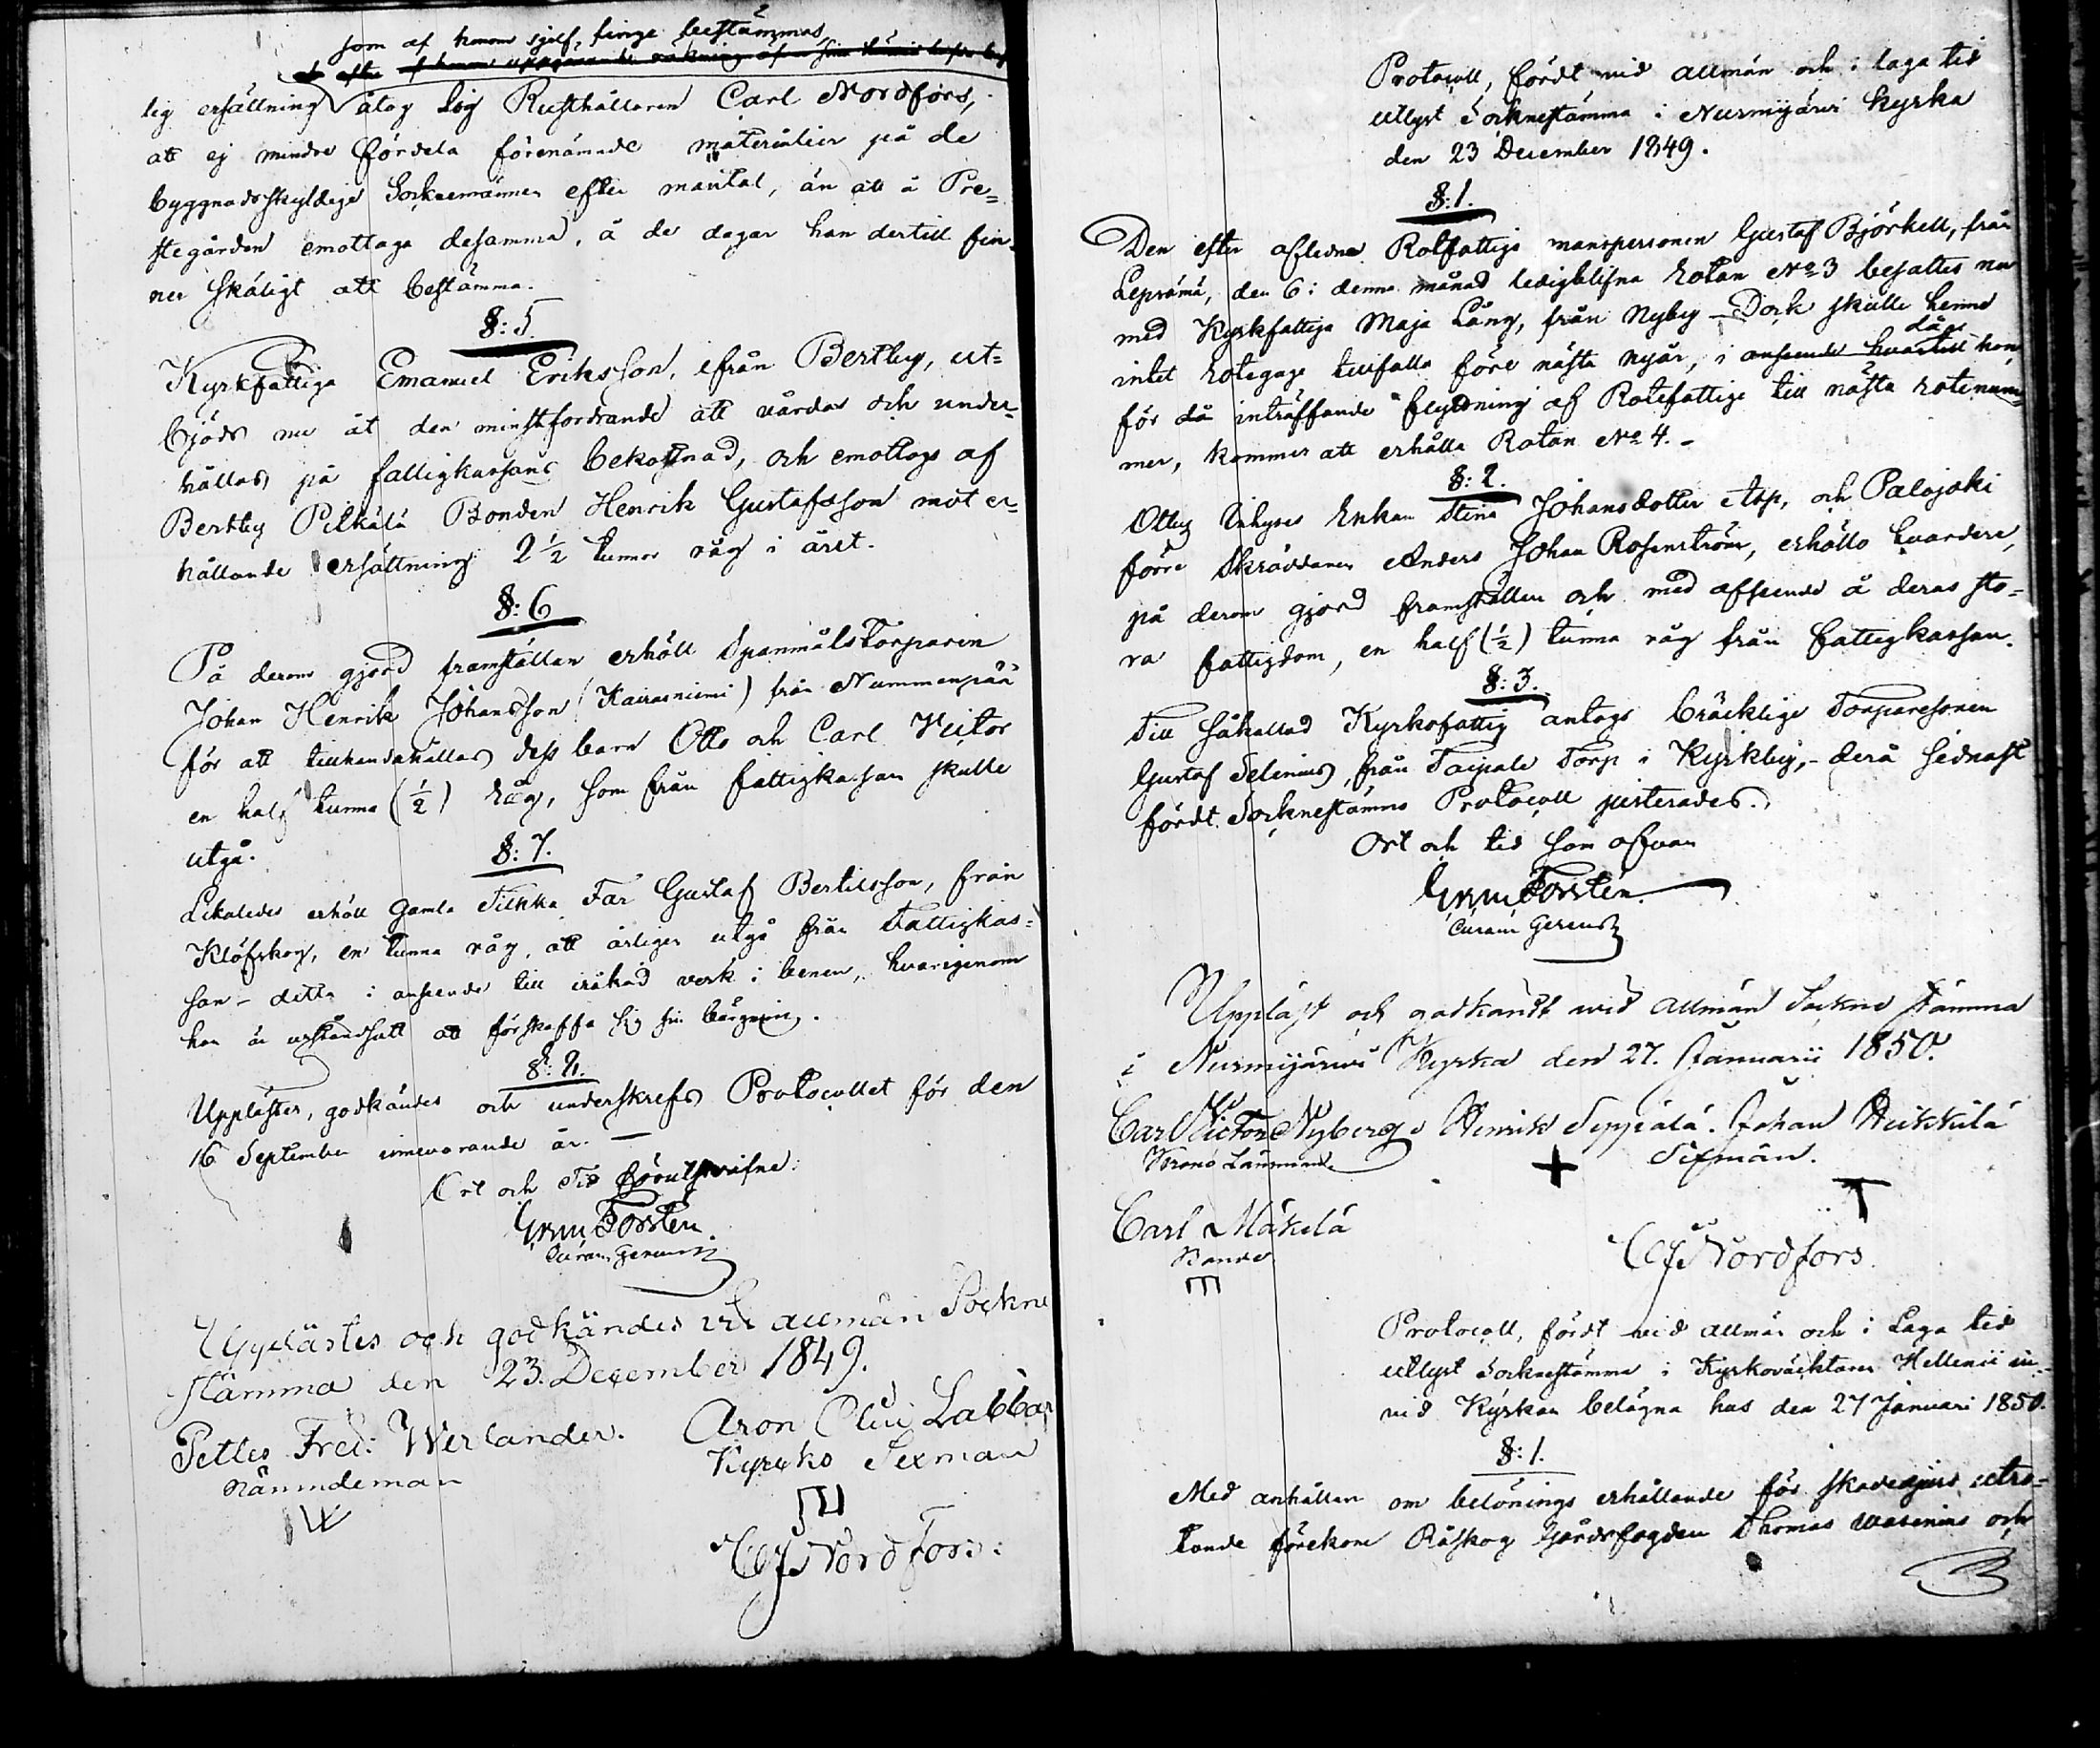 som af honom sjelf, finge bestämmas,
lig ersättning åtog sig Rusthållaren Carl Nordfors,
att ej mindre fördela förenämnde materialier på de
byggnadsskyldige Sockenemännen efter mantal, än att å Pre=
stegården emottaga desamma, å de dagar han dertill fin=
ner skäligt att bestämma.
§: 5.
Kyrkfattiga Emanuel Eriksson, ifrån Bertby, ut=
bjöds nu åt den minstfordrande att vårdas och under=
hållas på fattigkassans bekostnad, och emottogs af
Bertby Pilkälä Bonden Henrik Gustafsson mot er=
hållande ersättning 2 ½ tunnor råg i året.
§: 6
På derom gjord framställan erhöll Spanmålstorparen
Johan Henrik Johansson (Kairasniemi) från Nummenpää
för att tillhandahållas dess barn Otto och Carl Victor
en half tunna (½) Råg, som från fattigkassan skulle
utgå.
§: 7.
Likaledes erhöll gamla Tilkka Far Gustaf Bertilsson, från
Klöfskog, en tunna råg, att årligen utgå från Fattigkas=
san - detta i anseende till iråkad verk i benen, hvarigenom
han är urståndsatt att förskaffa sig sin bärgning.
§: 8.
Upplästes, godkändes och underskrefs Protocollet för den
16 September innevarande år. —
Ort och Tid föruthskrifne:
Grm: Forstén.
Curam Gerens
Upplästes och godkändes vid allmän Sockne
stämma den 23. December 1849.
Petter Fred: Werlander. Aron Labbar
Nämndeman Kyrcko Sexman
CJNordfors:
Protocoll, fördt vid allmän och i laga tid
utlyst Socknestämma i Nurmijärvi Kyrka
den 23 December 1849.
§: 1.
Den efter aflidne Rotfattige manspersonen Gustaf Björkell, från
Lepsämä, den 6: denna månad ledigblifna Rotan No 3 besattes nu
med Kyrkfattiga Maja Lång, från Nyby - Dock skulle henne
intet Rotegage tillfalla före nästa nyår, i anseende hvartill hon
då
för då inträffande flyttning af Rotefattige till nästa rotenum=
mer, kommer att erhålla Rotan No 4. -
§: 2.
Otby Inhyses Enkan Stina Johansdotter Asp, och Palojoki
förre Skräddaren Anders Johan Rosenström, erhöllo hvardera,
på derom gjord framställan och med afseende å deras sto=
ra fattigdom, en half (½) tunna råg från fattigkassan.
§: 3.
Till såkallad Kyrkofattig antogs bräcklige Torparesonen
Gustaf Selenius, från Taipale Torp i Kyrkby, - derå sednast
fördt Socknestämmo Protocoll justerades.
Ort och tid som ofvan
Grm: Forstén.
Curam Gerens
Uppläst och godkändt wid allmän Sockne stämma
i Nurmijärwi Kyrka den 27. Januarii 1850.
Carl Victor Nyberg Henrik Seppälä. Johan Heikkilä
Krono Länsman. + Sexman.
Carl Mäkelä
Bonde
CJNordfors.
Protocoll, fördt vid allmän och i Laga tid
utlyst Socknestämma i Kyrkoväcktaren Hellenii in=
vid Kyrkan belägna hus den 27 Januari 1850.
§: 1.
Med anhållan om belönings erhållande för skadedjurs utro=
tande förekom Röskog Gårdsfogden Thomas Wasenius och